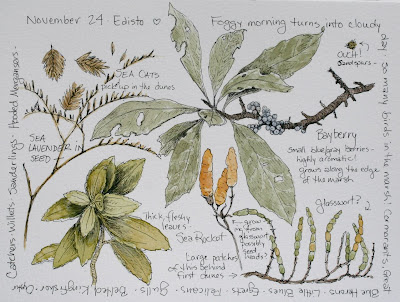 November 24 · Edisto ♡
Foggy morning turns into cloudy
day! so many birds in the marsh! Cormorants, Great
Blue Herons · Little Blues · Egrets · Pelicans · Gulls · Belted Kingfisher ·
Oystercatchers · Willets · Sanderlings · Hooded Mergansers ·
SEA OATS
picked up in the dunes
OUCH!
Sandspurs -
SEA
LAVENDER IN
SEED -
Bayberry
small blue/gray berries -
highly aromatic!
grows along the edge
of the marsh
thick, fleshy
leaves -
Sea Rocket
Large patches
of this behind
first dunes →
glasswort?